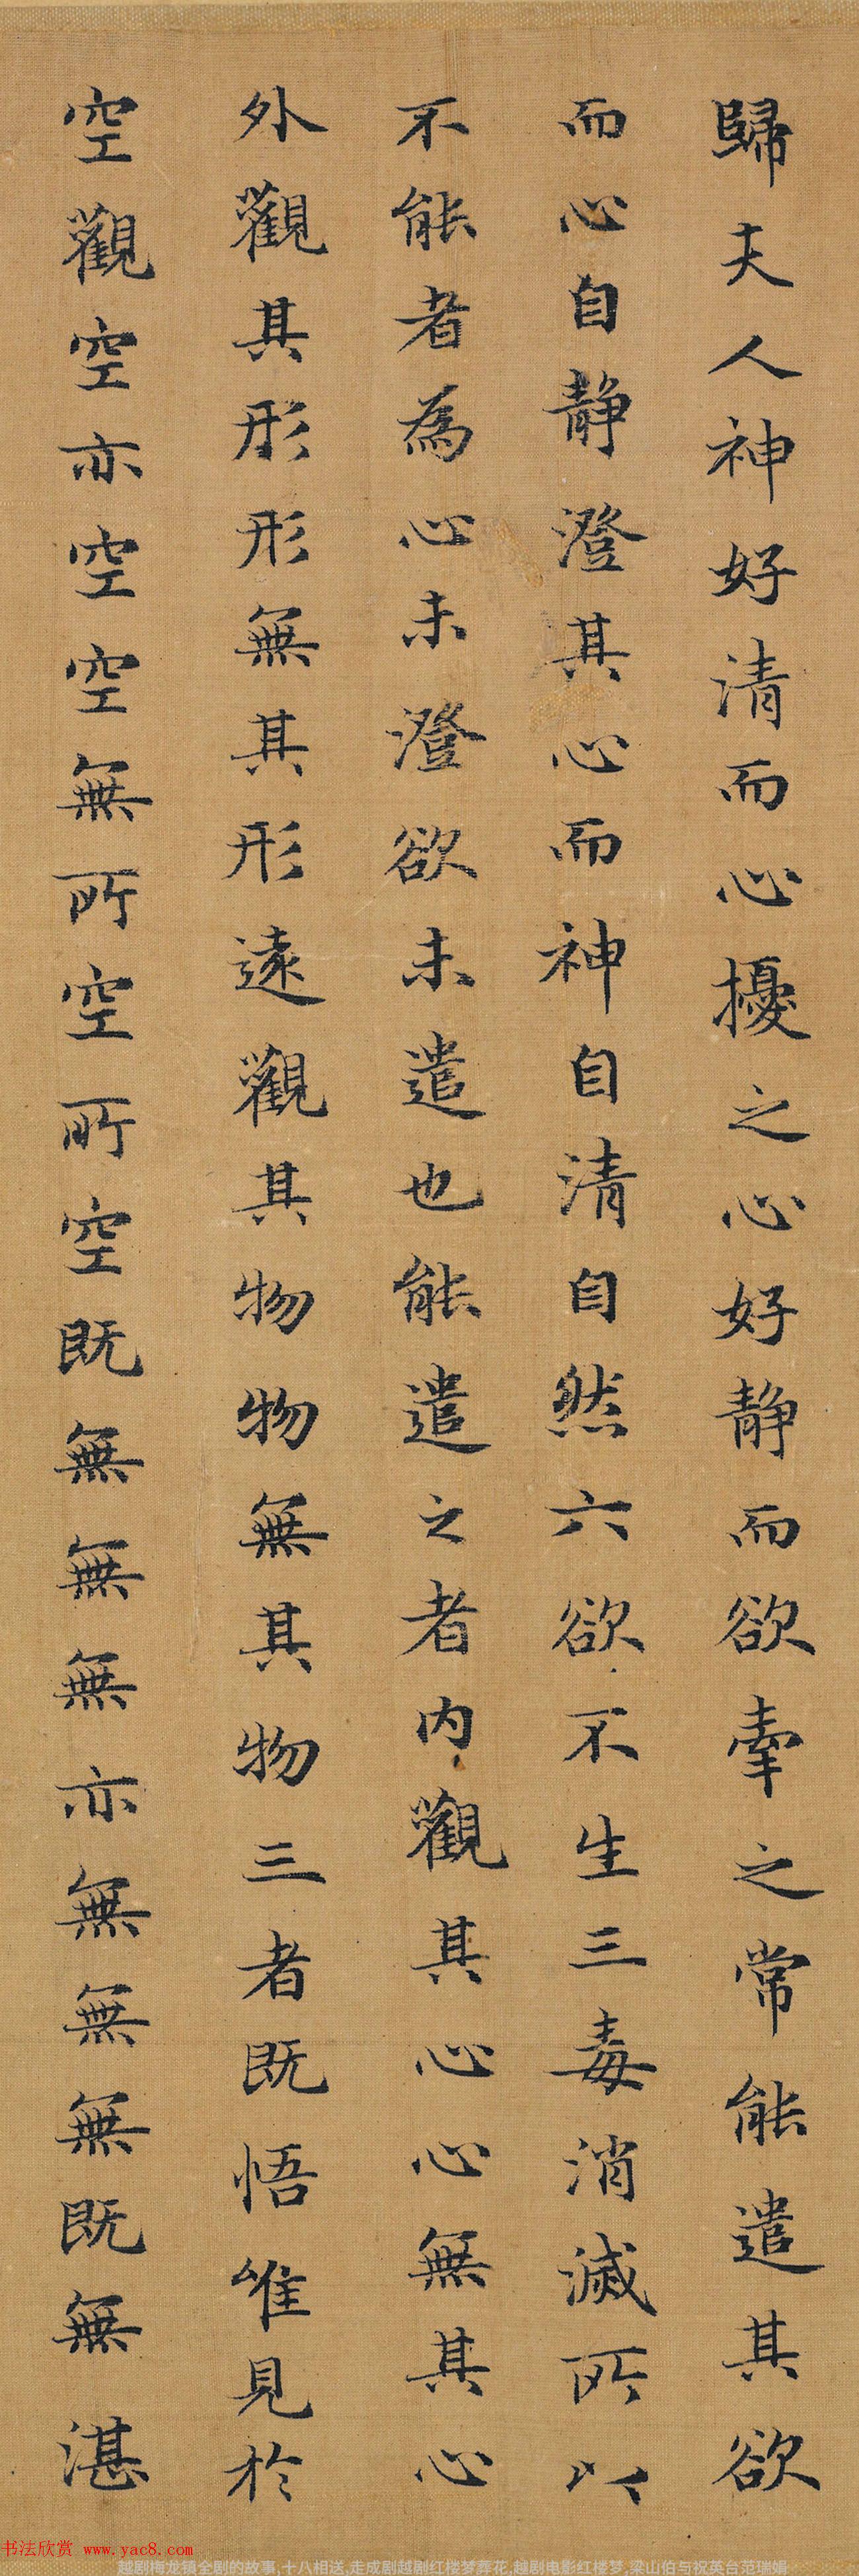 歸夫人神好清而心擾之心好静而欲牽之常能遣其欲
而心自静澄其心而神自清自然六欲不生三毒消滅所以
不能者為心未澄欲未遣也能遣之者内觀其心心無其心
外觀其形形無其形遠觀其物物無其物三者既悟唯見於
空觀空亦空空無所空所空既無無無亦無無無既無湛
书法欣赏 www.yac8.com
越剧梅龙镇全剧的故事,十八相送,走成剧越剧红楼梦葬花,越剧电影红楼梦,梁山伯与祝英台范瑞娟